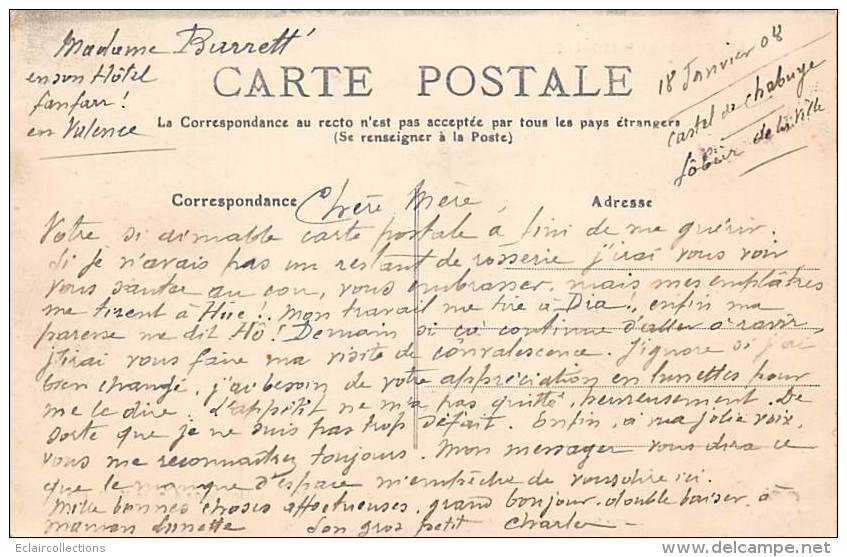 Madame Burrett
en son Hôtel
fanfarr!
en Valence
18 Janvier 08
Castel de Chabuye
de la Ville
CARTE POSTALE
La Correspondance au recto n'est pas acceptée par tous les pays étrangers
(Se renseigner à la Poste)
Correspondance
Adresse
Chère Mère,
Votre si aimable carte postale à fini de me guérir.
Si je n'avais pas un restant de rosserie j'irai vous voir
vous sauter au cou, vous embrasser, mais mes emplâtres
me tirent à Hue!. Mon travail me tire à Dia!, enfin ma
paresse me dit Hô! Demain si ça continue d'aller à ravir,
j'irai vous faire ma visite de convalescence. J'ignore si j'ai
bien changé, j'ai besoin de votre appréciation en lunettes pour
me le dire. L'appétit ne m'a pas quitté, heureusement. De
sorte que je ne suis pas trop défait. Enfin, à ma jolie voix,
vous me reconnaitrez toujours. Mon messager vous dira ce
que le manque d'espace m'empêche de vous dire ici.
Mille bonnes choses affectueuses, grand bonjour, double baiser à
maman Linette Son gros petit Charles
Eclaircollections
www.delcampe.net